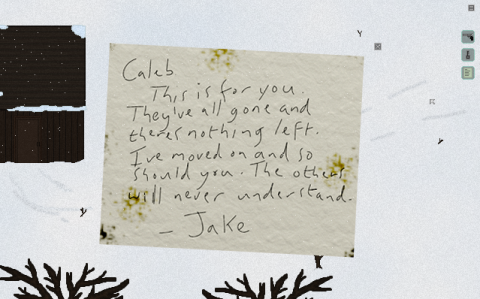 Caleb
This is for you.
They've all gone and
theres nothing left.
I've moved on and so
should you. The others
will never understand.
- Jake